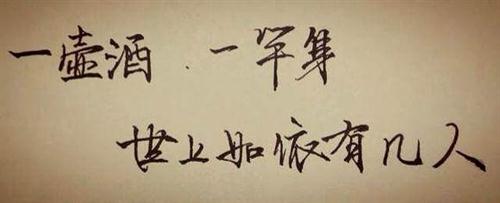 一壶酒 . 一竿隼
世上如依有几人